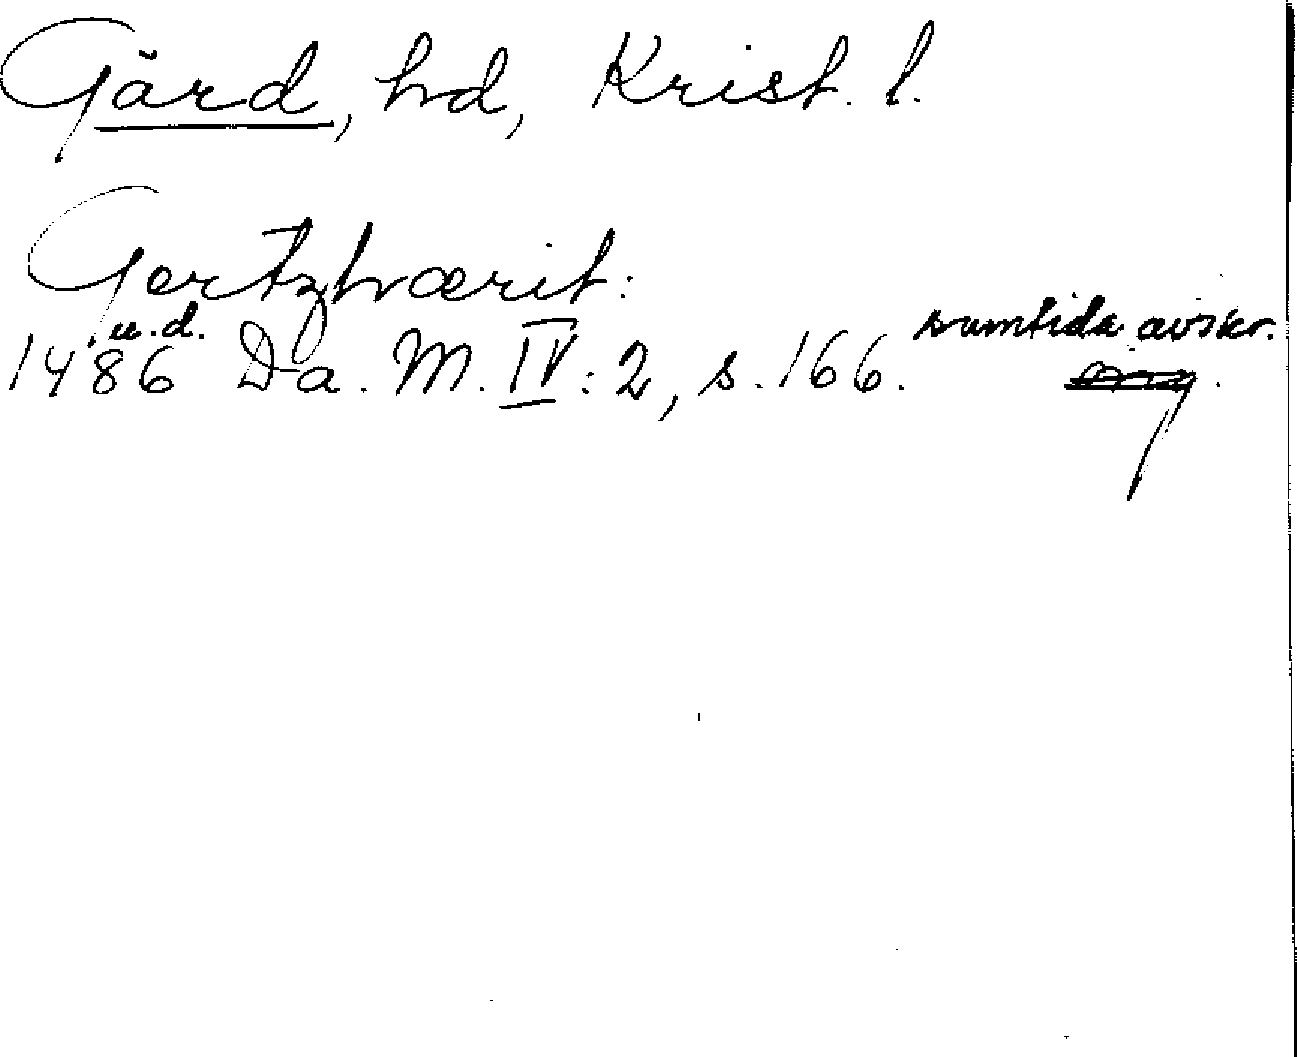 Gärd, hd, Krist. l.
Gertzhærit:
u.d. samtida avskr.
1486 Da. M. IV: 2, s. 166.